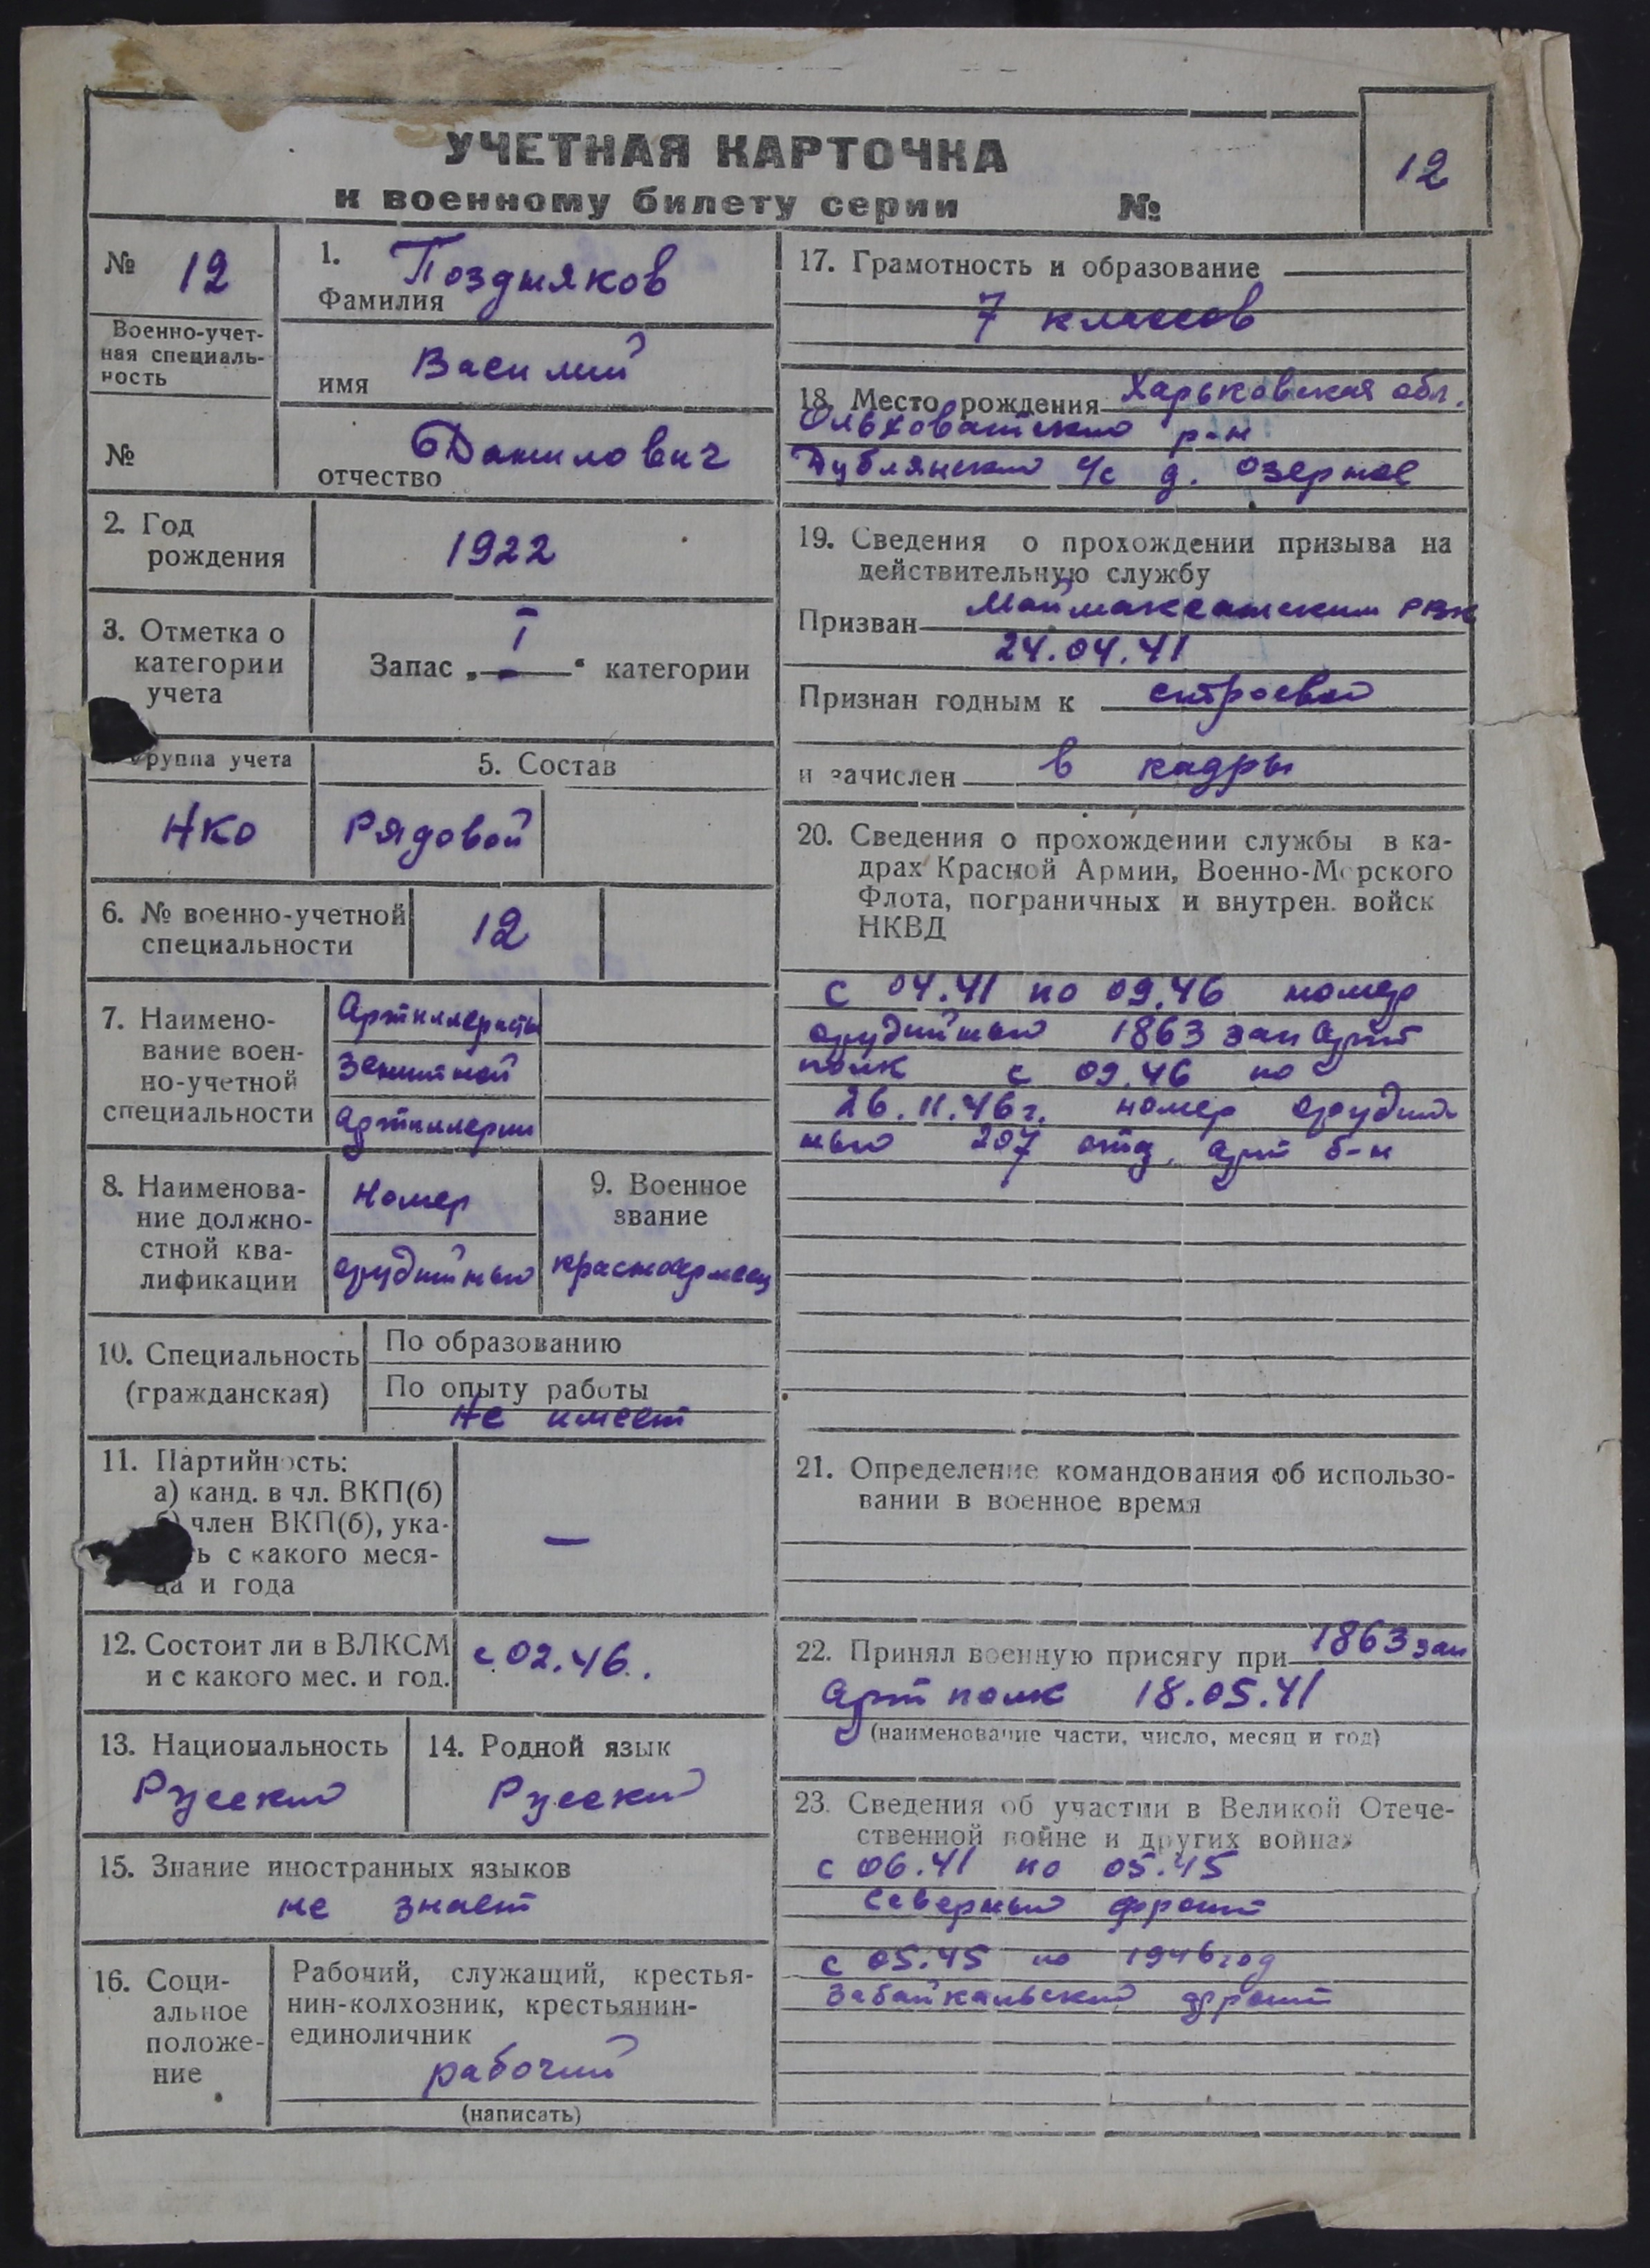 УЧЕТНАЯ КАРТОЧКА
к военному билету серии №
12
№ 12
Военно-учет-
ная специаль-
ность
№
1. Поздняков
Фамилия
имя Василий
отчество Данилович
2. Год
рождения
1922
3. Отметка о
категории
учета
Запас „ I “ категории
группа учета
НКО
5. Состав
Рядовой
6. № военно-учетной
специальности
12
7. Наимено-
вание воен-
но-учетной
специальности
Артиллеристы
зенитной
артиллерии
8. Наименова-
ние должно-
стной ква-
лификации
Номер
орудийный
9. Военное
звание
красноармеец
10. Специальность
(гражданская)
По образованию
По опыту работы
Не имеет
11. Партийность:
а) канд. в чл. ВКП(б)
б) член ВКП(б), ука-
ь с какого меся-
ца и года
—
12. Состоит ли в ВЛКСМ
и с какого мес. и год.
с 02.46.
13. Национальность
Русский
14. Родной язык
Русский
15. Знание иностранных языков
не знает
16. Соци-
альное
положе-
ние
Рабочий, служащий, крестья-
нин-колхозник, крестьянин-
единоличник
рабочий
(написать)
17. Грамотность и образование
7 классов
18. Место рождения Харьковская обл.
Ольховатский р-н
Дублянский с/с д. Озерное
19. Сведения о прохождении призыва на
действительную службу
Призван Маймаксанским РВК
24.04.41
Признан годным к строевой
и зачислен в кадры
20. Сведения о прохождении службы в ка-
драх Красной Армии, Военно-Морского
Флота, пограничных и внутрен. войск
НКВД
с 04.41 по 09.46 номер
орудийный 1863 зен арт
полк с 09.46 по
26.11.46г. номер орудий-
ный 207 отд. арт б-н
21. Определение командования об использо-
вании в военное время
22. Принял военную присягу при 1863 зен
арт полк 18.05.41
(наименование части, число, месяц и год)
23. Сведения об участии в Великой Отече-
ственной войне и других войнах
с 06.41 по 05.45
Северный фронт
с 05.45 по 1946 год
Забайкальский фронт